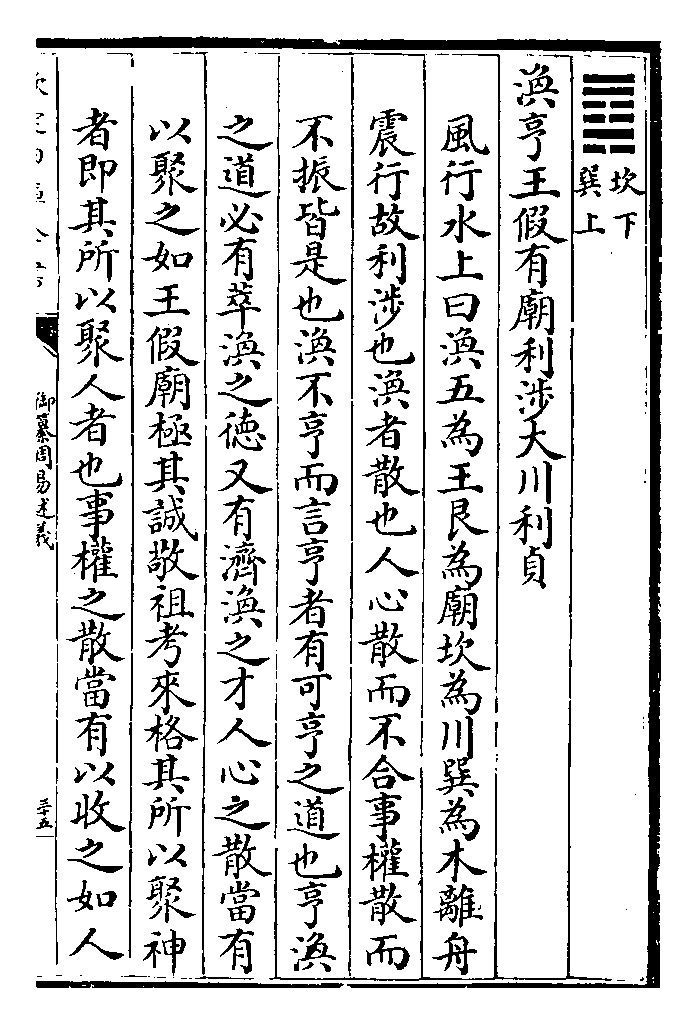 坎下
巽上
渙亨王假有廟利涉大川利貞
風行水上曰渙五為王艮為廟坎為川巽為木離舟
震行故利涉也渙者散也人心散而不合事權散而
不振皆是也渙不亨而言亨者有可亨之道也亨渙
之道必有萃渙之徳又有濟渙之才人心之散當有
以聚之如王假廟極其誠敬祖考來格其所以聚神
者即其所以聚人者也事權之散當有以收之如人
御纂周易述義
三十五